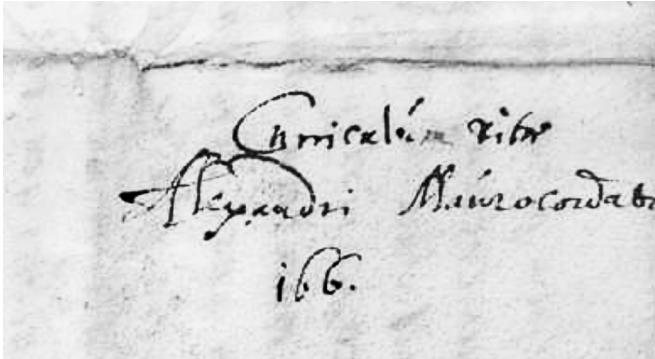 Curricalúm vitæ
Alexandri Maúrocordato
166.